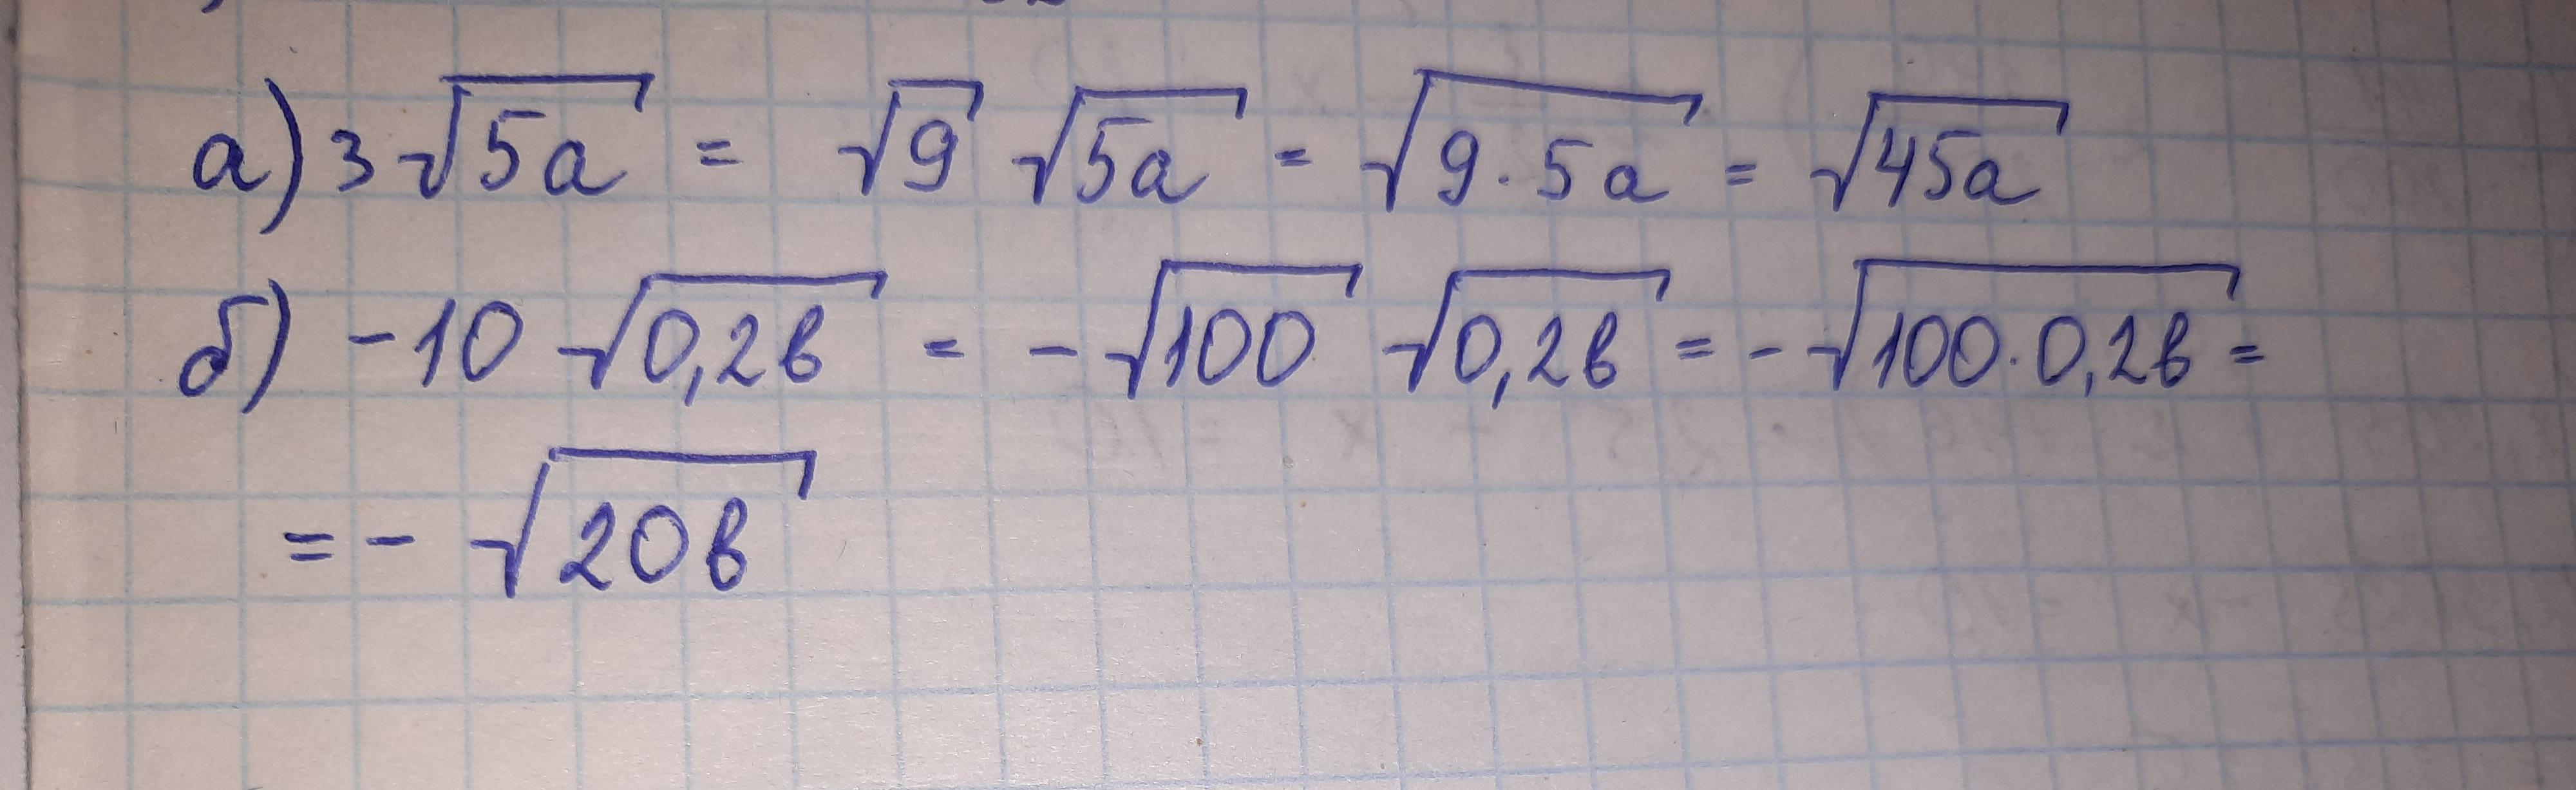 а) 3√5a = √9 √5a = √9·5a = √45a
б) -10 √0,2в = -√100 √0,2в = -√100·0,2в =
= - √20в